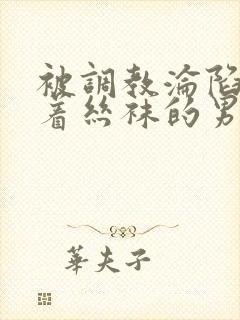 被調教淪陷
着絲襪的男
華夫子